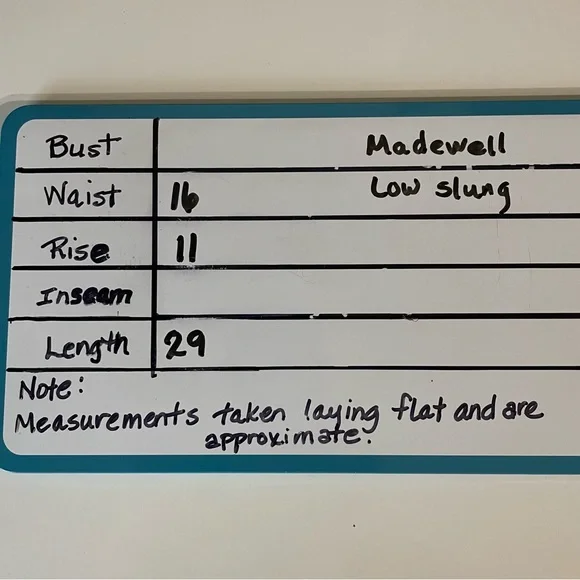 Bust Madewell
Waist 16 Low slung
Rise 11
Inseam
Length 29
Note:
Measurements taken laying flat and are
approximate.